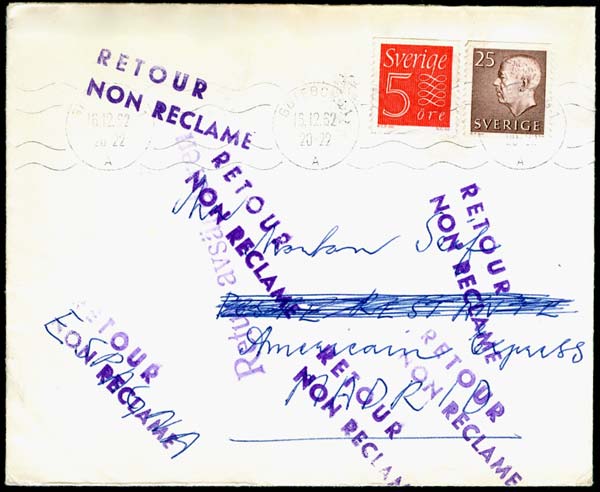 RETOUR
NON RECLAME
Sverige
5
öre
25
SVERIGE
GÖTEBORG
16.12.62
20-22
A
16.12.62
20-22
A
20-22
A
RETOUR
NON RECLAME
Retur
avsändaren
RETOUR
NON RECLAME
Morton
POSTE RESTANTE
American Express
MADRID
ESPAGNA
RETOUR
NON RECLAME
RETOUR
NON RECLAME
RETOUR
NON RECLAME